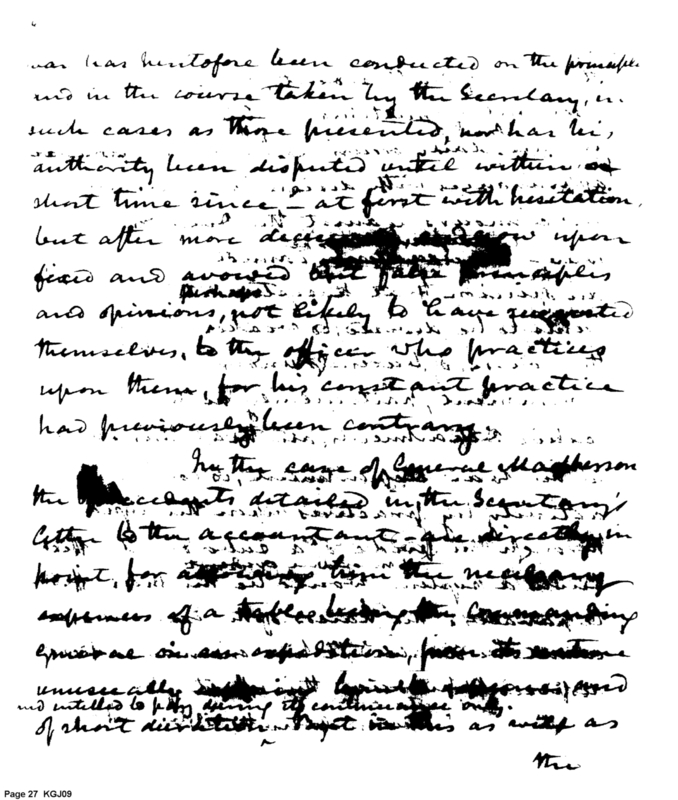 war has heretofore been conducted on the principle
and in the course taken by the Secretary, in
such cases as those presented, nor has his
authority been disputed until within a
short time since - at first with hesitation,
but after more upon
fixed and avowed but false principles
and opinions, perhaps not likely to have suggested
themselves, to the officer who practices
upon them, for his constant practice
had previously been contrary.
In the case of General Macpherson
the detailed in the Secretary's
letter to the accountant - are directly in
point, for allowing him the necessary
expenses of a table being the commanding
General on an expedition, from its nature
unusually and
and entitled to pay during its continuance only.
of short duration. But in this as well as
the
Page 27 KGJ09